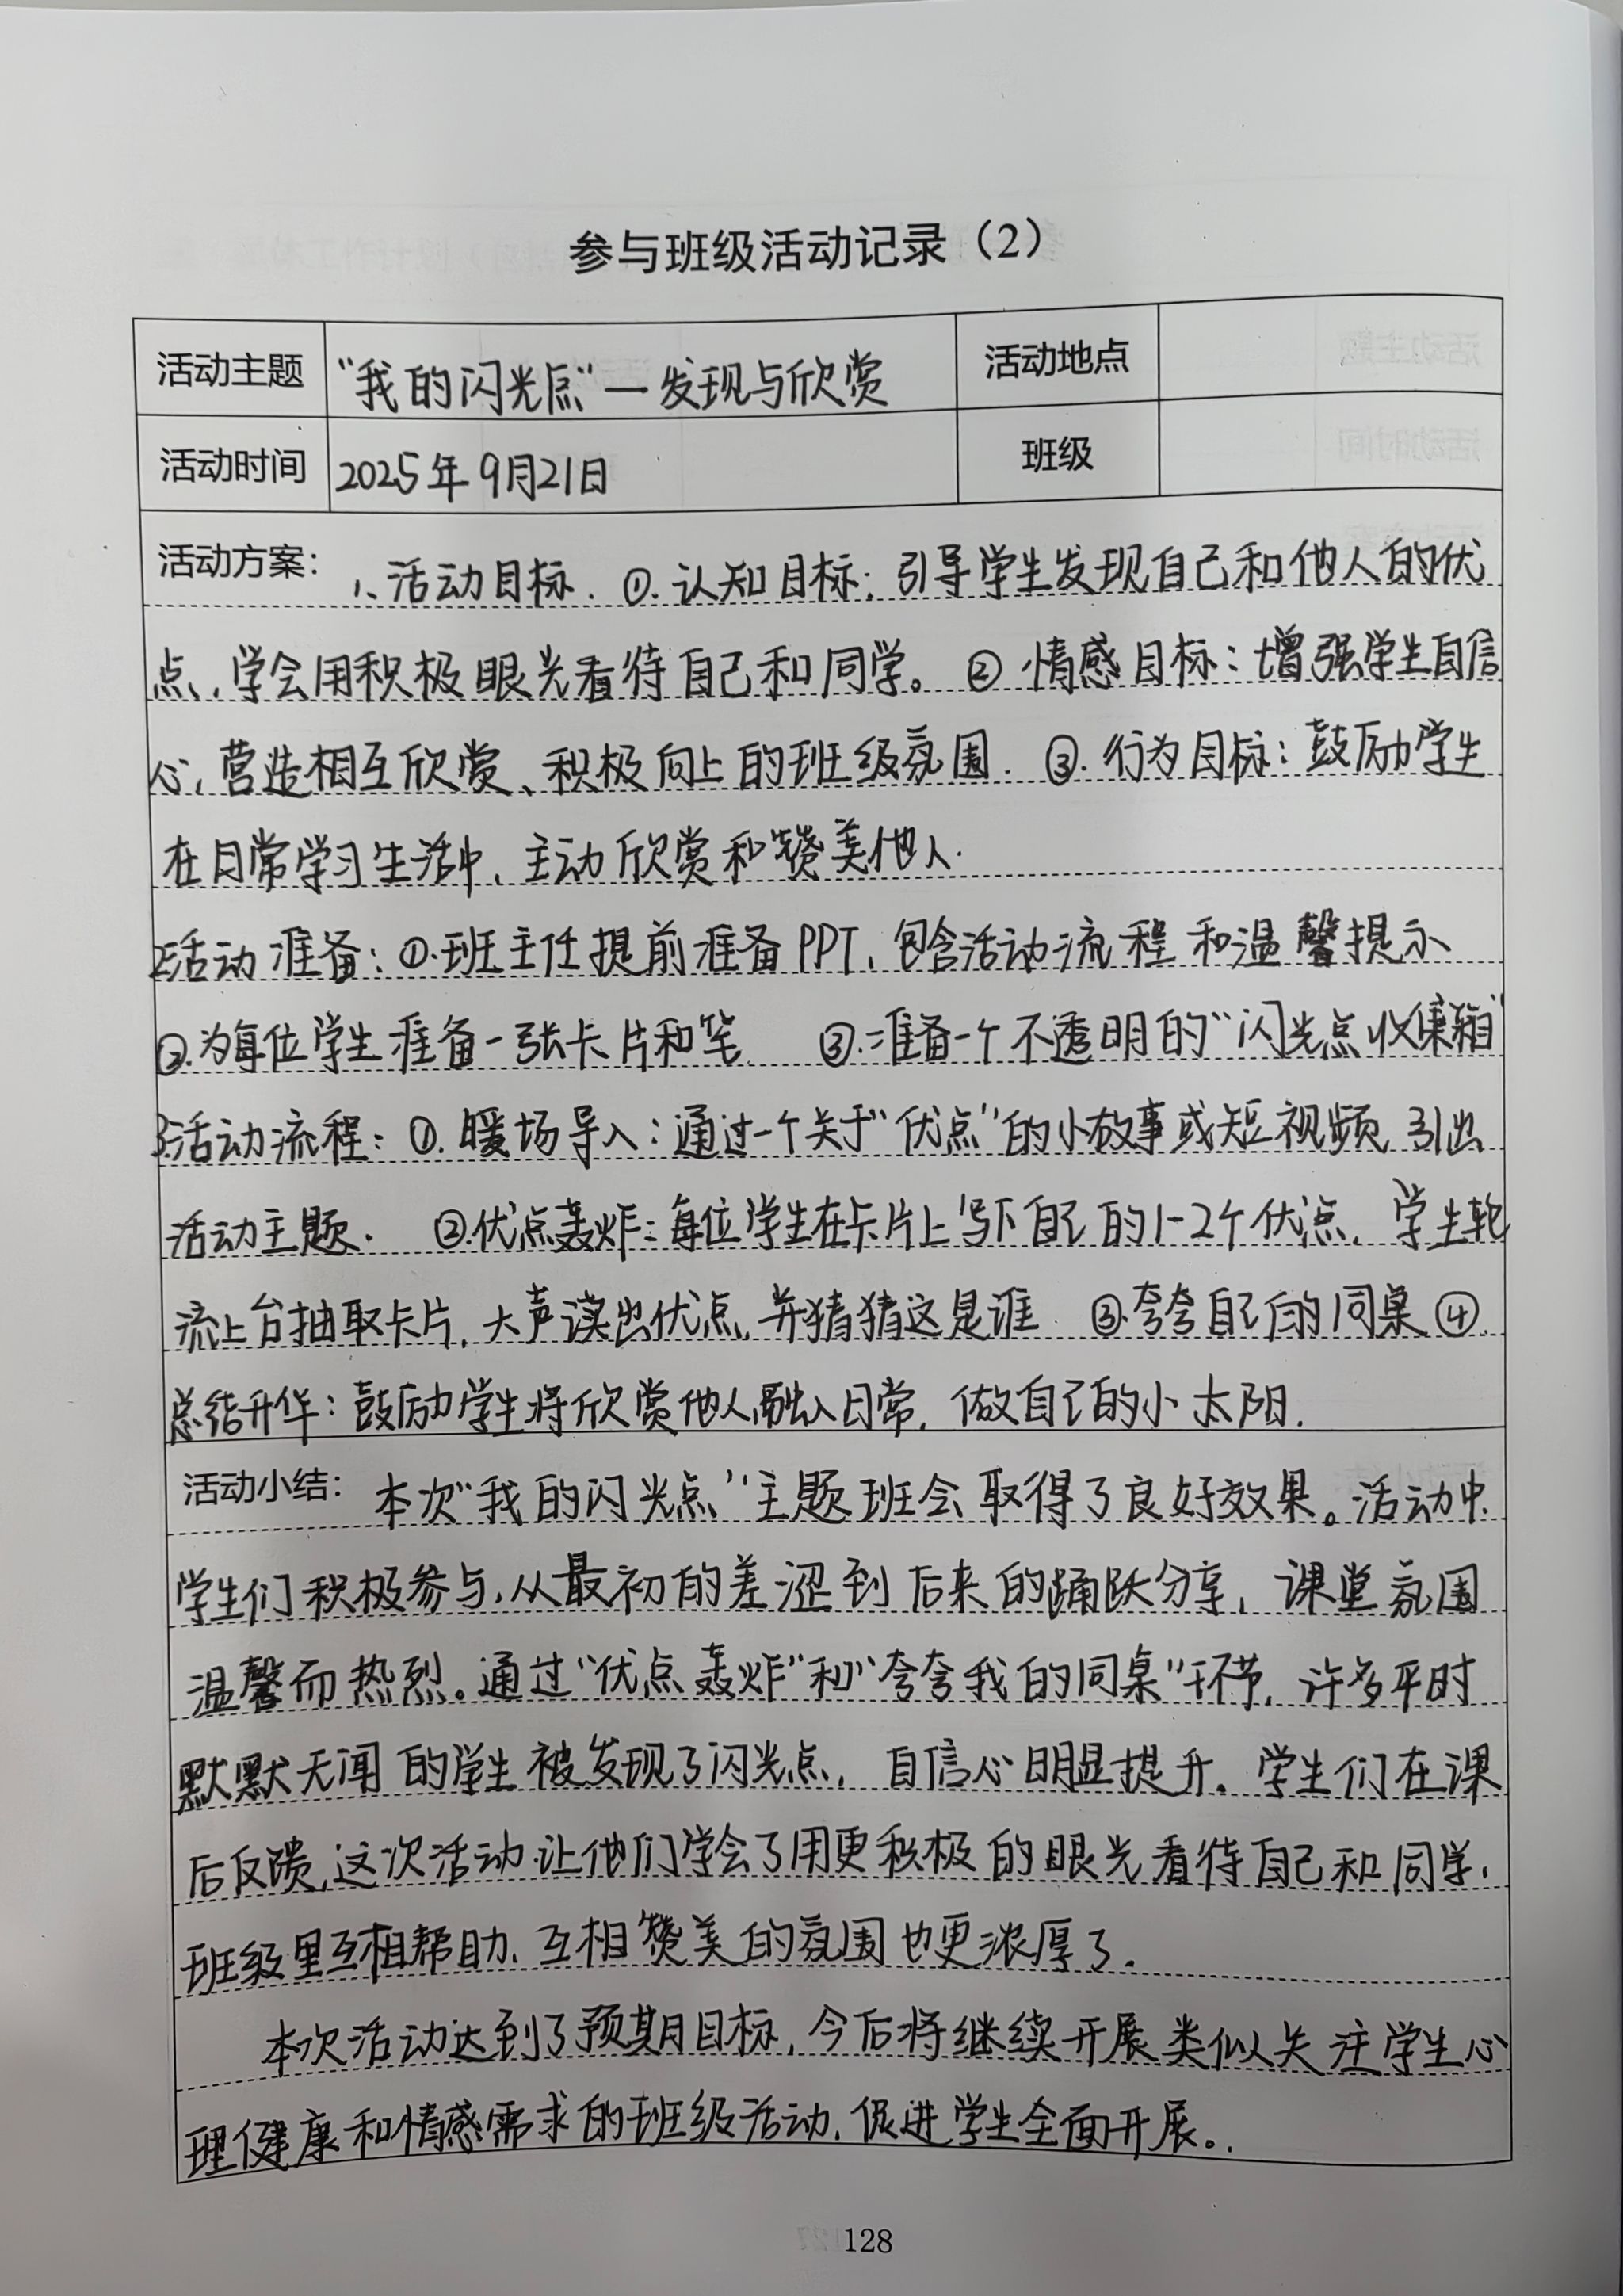 参与班级活动记录（2）
活动主题 “我的闪光点”—发现与欣赏 活动地点
活动时间 2025年9月21日 班级
活动方案： 1、活动目标. ①. 认知目标：引导学生发现自己和他人的优
点，学会用积极眼光看待自己和同学。 ② 情感目标：增强学生自信
心，营造相互欣赏、积极向上的班级氛围. ③. 行为目标：鼓励学生
在日常学习生活中，主动欣赏和赞美他人.
2.活动准备：①.班主任提前准备PPT，包含活动流程和温馨提示
②.为每位学生准备一张卡片和笔. ③.准备一个不透明的“闪光点收集箱”
3.活动流程：①. 暖场导入：通过一个关于“优点”的小故事或短视频，引出
活动主题. ②.优点轰炸：每位学生在卡片上写下自己的1-2个优点，学生轮
流上台抽取卡片，大声读出优点，并猜猜这是谁 ③.夸夸自己的同桌 ④.
总结升华：鼓励学生将欣赏他人融入日常，做自己的小太阳.
活动小结： 本次“我的闪光点”主题班会取得了良好效果。活动中
学生们积极参与，从最初的羞涩到后来的踊跃分享，课堂氛围
温馨而热烈。通过“优点轰炸”和“夸夸我的同桌”环节，许多平时
默默无闻的学生被发现了闪光点，自信心明显提升。学生们在课
后反馈，这次活动让他们学会了用更积极的眼光看待自己和同学，
班级里互相帮助、互相赞美的氛围也更浓厚了.
本次活动达到了预期目标，今后将继续开展类似关注学生心
理健康和情感需求的班级活动，促进学生全面开展。
128